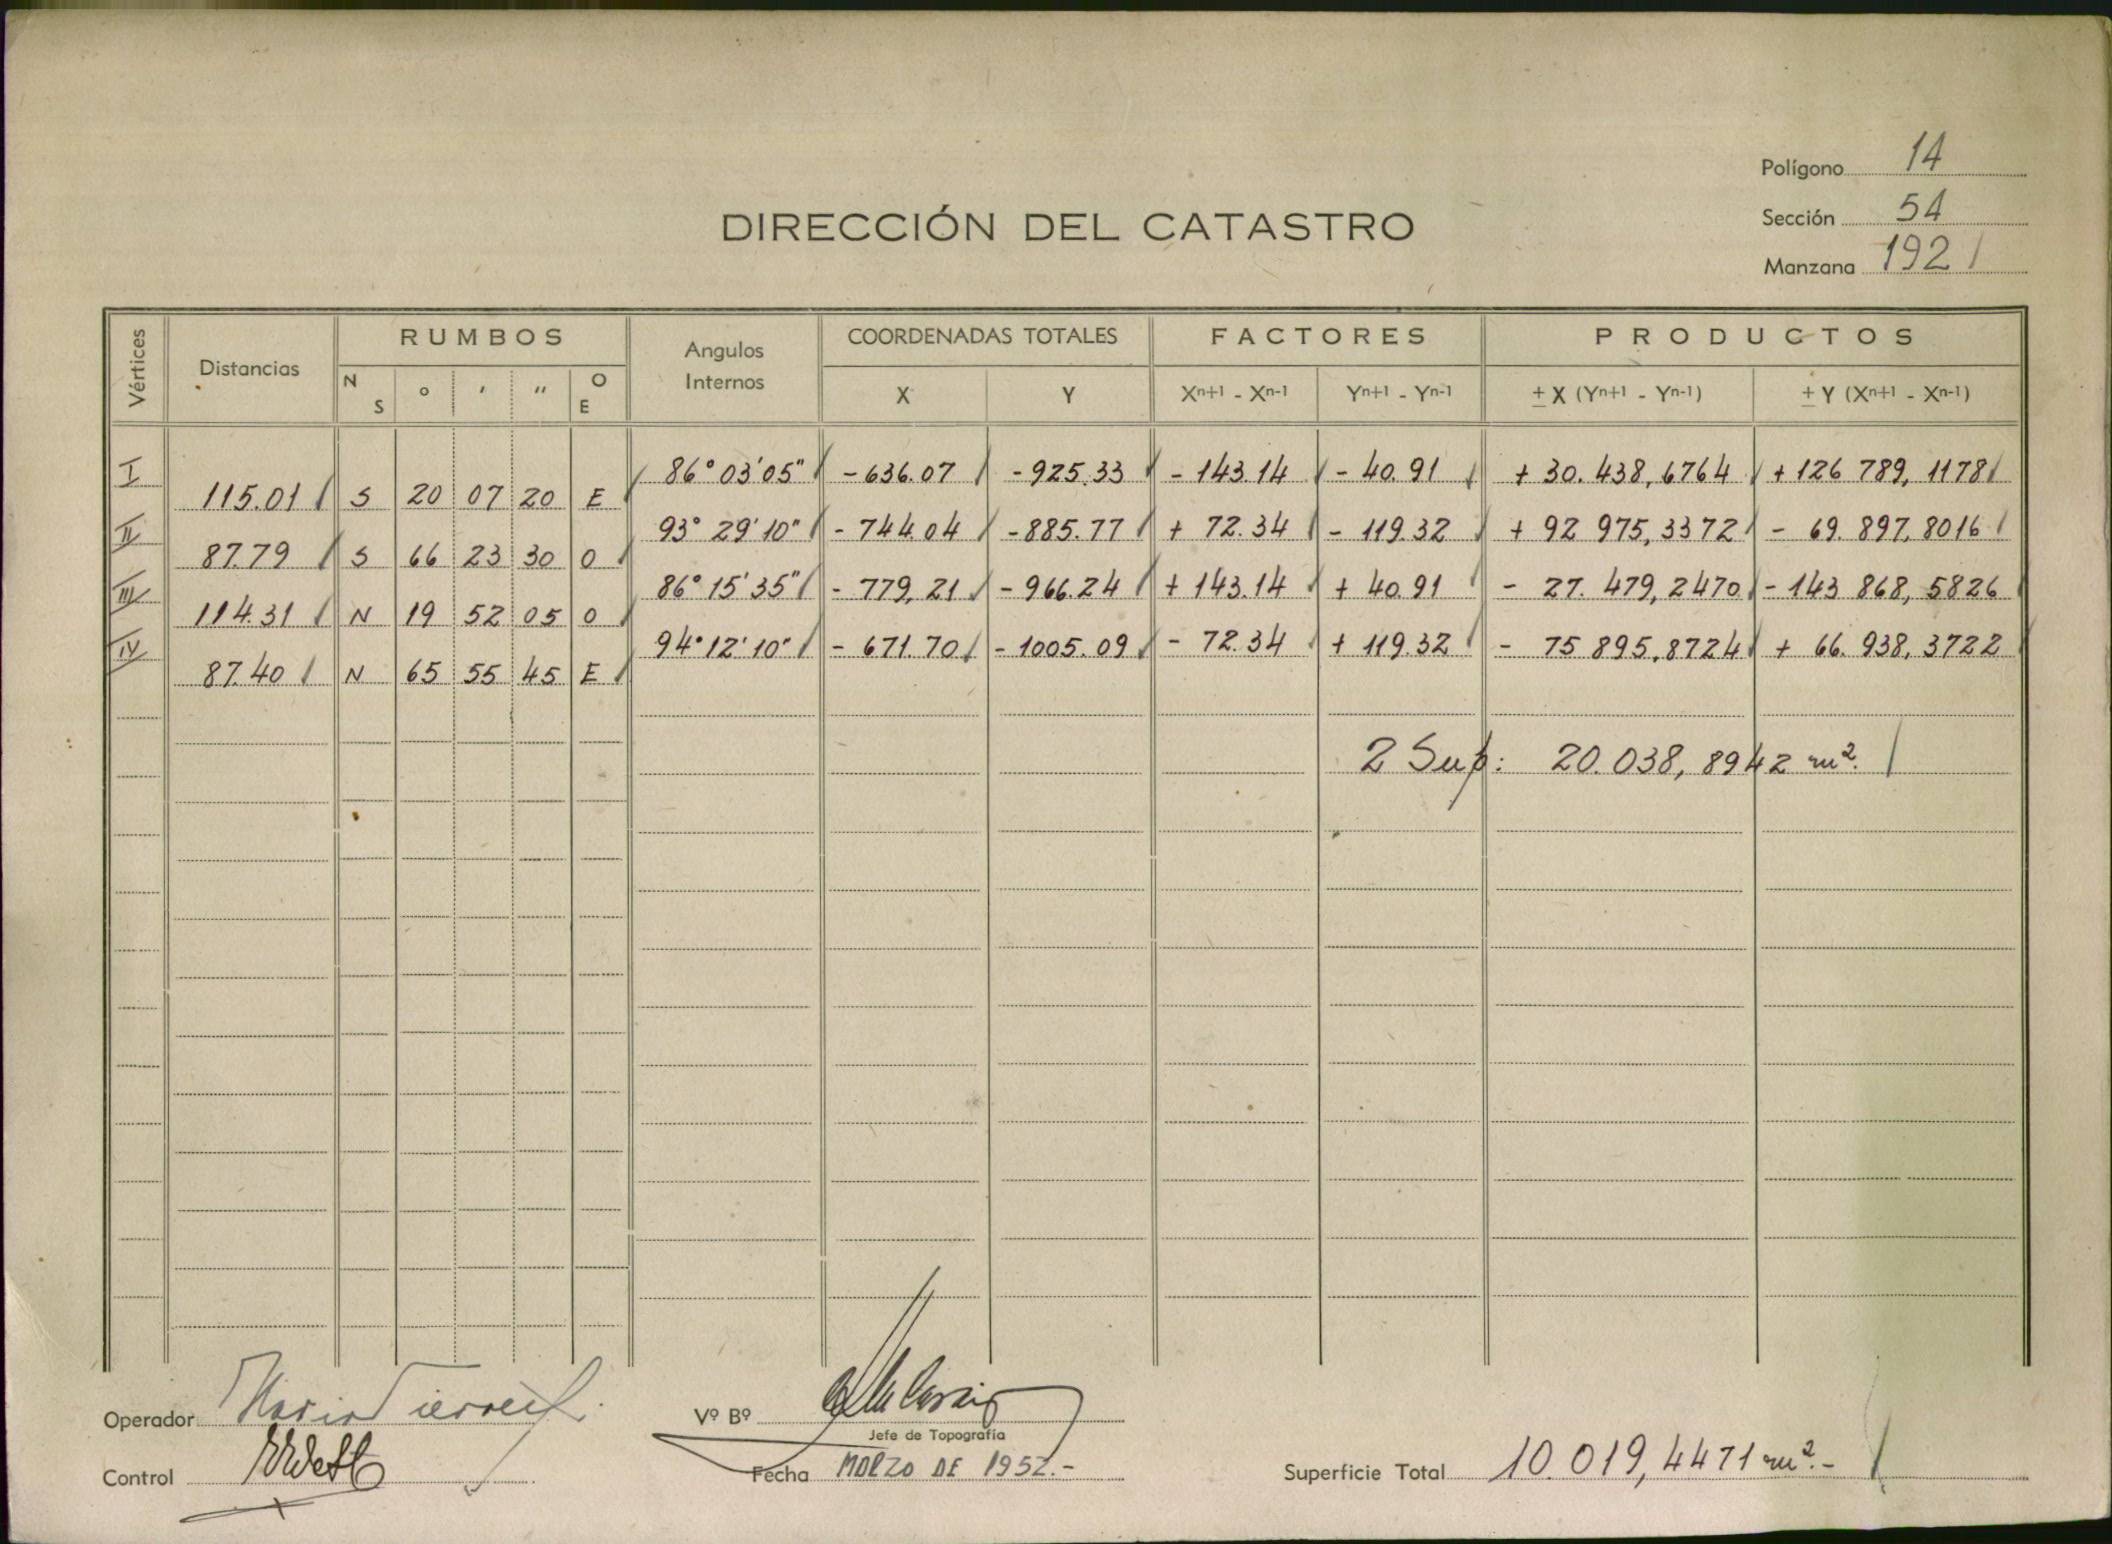 Polígono 14
Sección 54
Manzana 192
DIRECCIÓN DEL CATASTRO
Vértices Distancias RUMBOS Angulos Internos COORDENADAS TOTALES FACTORES PRODUCTOS
N S ° ' " O E X Y Xn+1 - Xn-1 Yn+1 - Yn-1 ± X (Yn+1 - Yn-1) ± Y (Xn+1 - Xn-1)
I 86° 03' 05" - 636.07 - 925.33 - 143.14 - 40.91 + 30.438,6764 + 126 789,1178
115.01 S 20 07 20 E
II 93° 29' 10" - 744.04 - 885.77 + 72.34 - 119.32 + 92 975,3372 - 69.897,8016
87.79 S 66 23 30 O
III 86° 15' 35" - 779,21 - 966.24 + 143.14 + 40.91 - 27.479,2470 - 143 868,5826
114.31 N 19 52 05 O
IV 94° 12' 10" - 671.70 - 1005.09 - 72.34 + 119.32 - 75 895,8724 + 66.938,3722
87.40 N 65 55 45 E
2 Sup: 20.038,8942 m².
Operador Mario
Vº Bº
Jefe de Topografía
Control
Fecha MARZO DE 1952.-
Superficie Total 10.019,4471 m².-